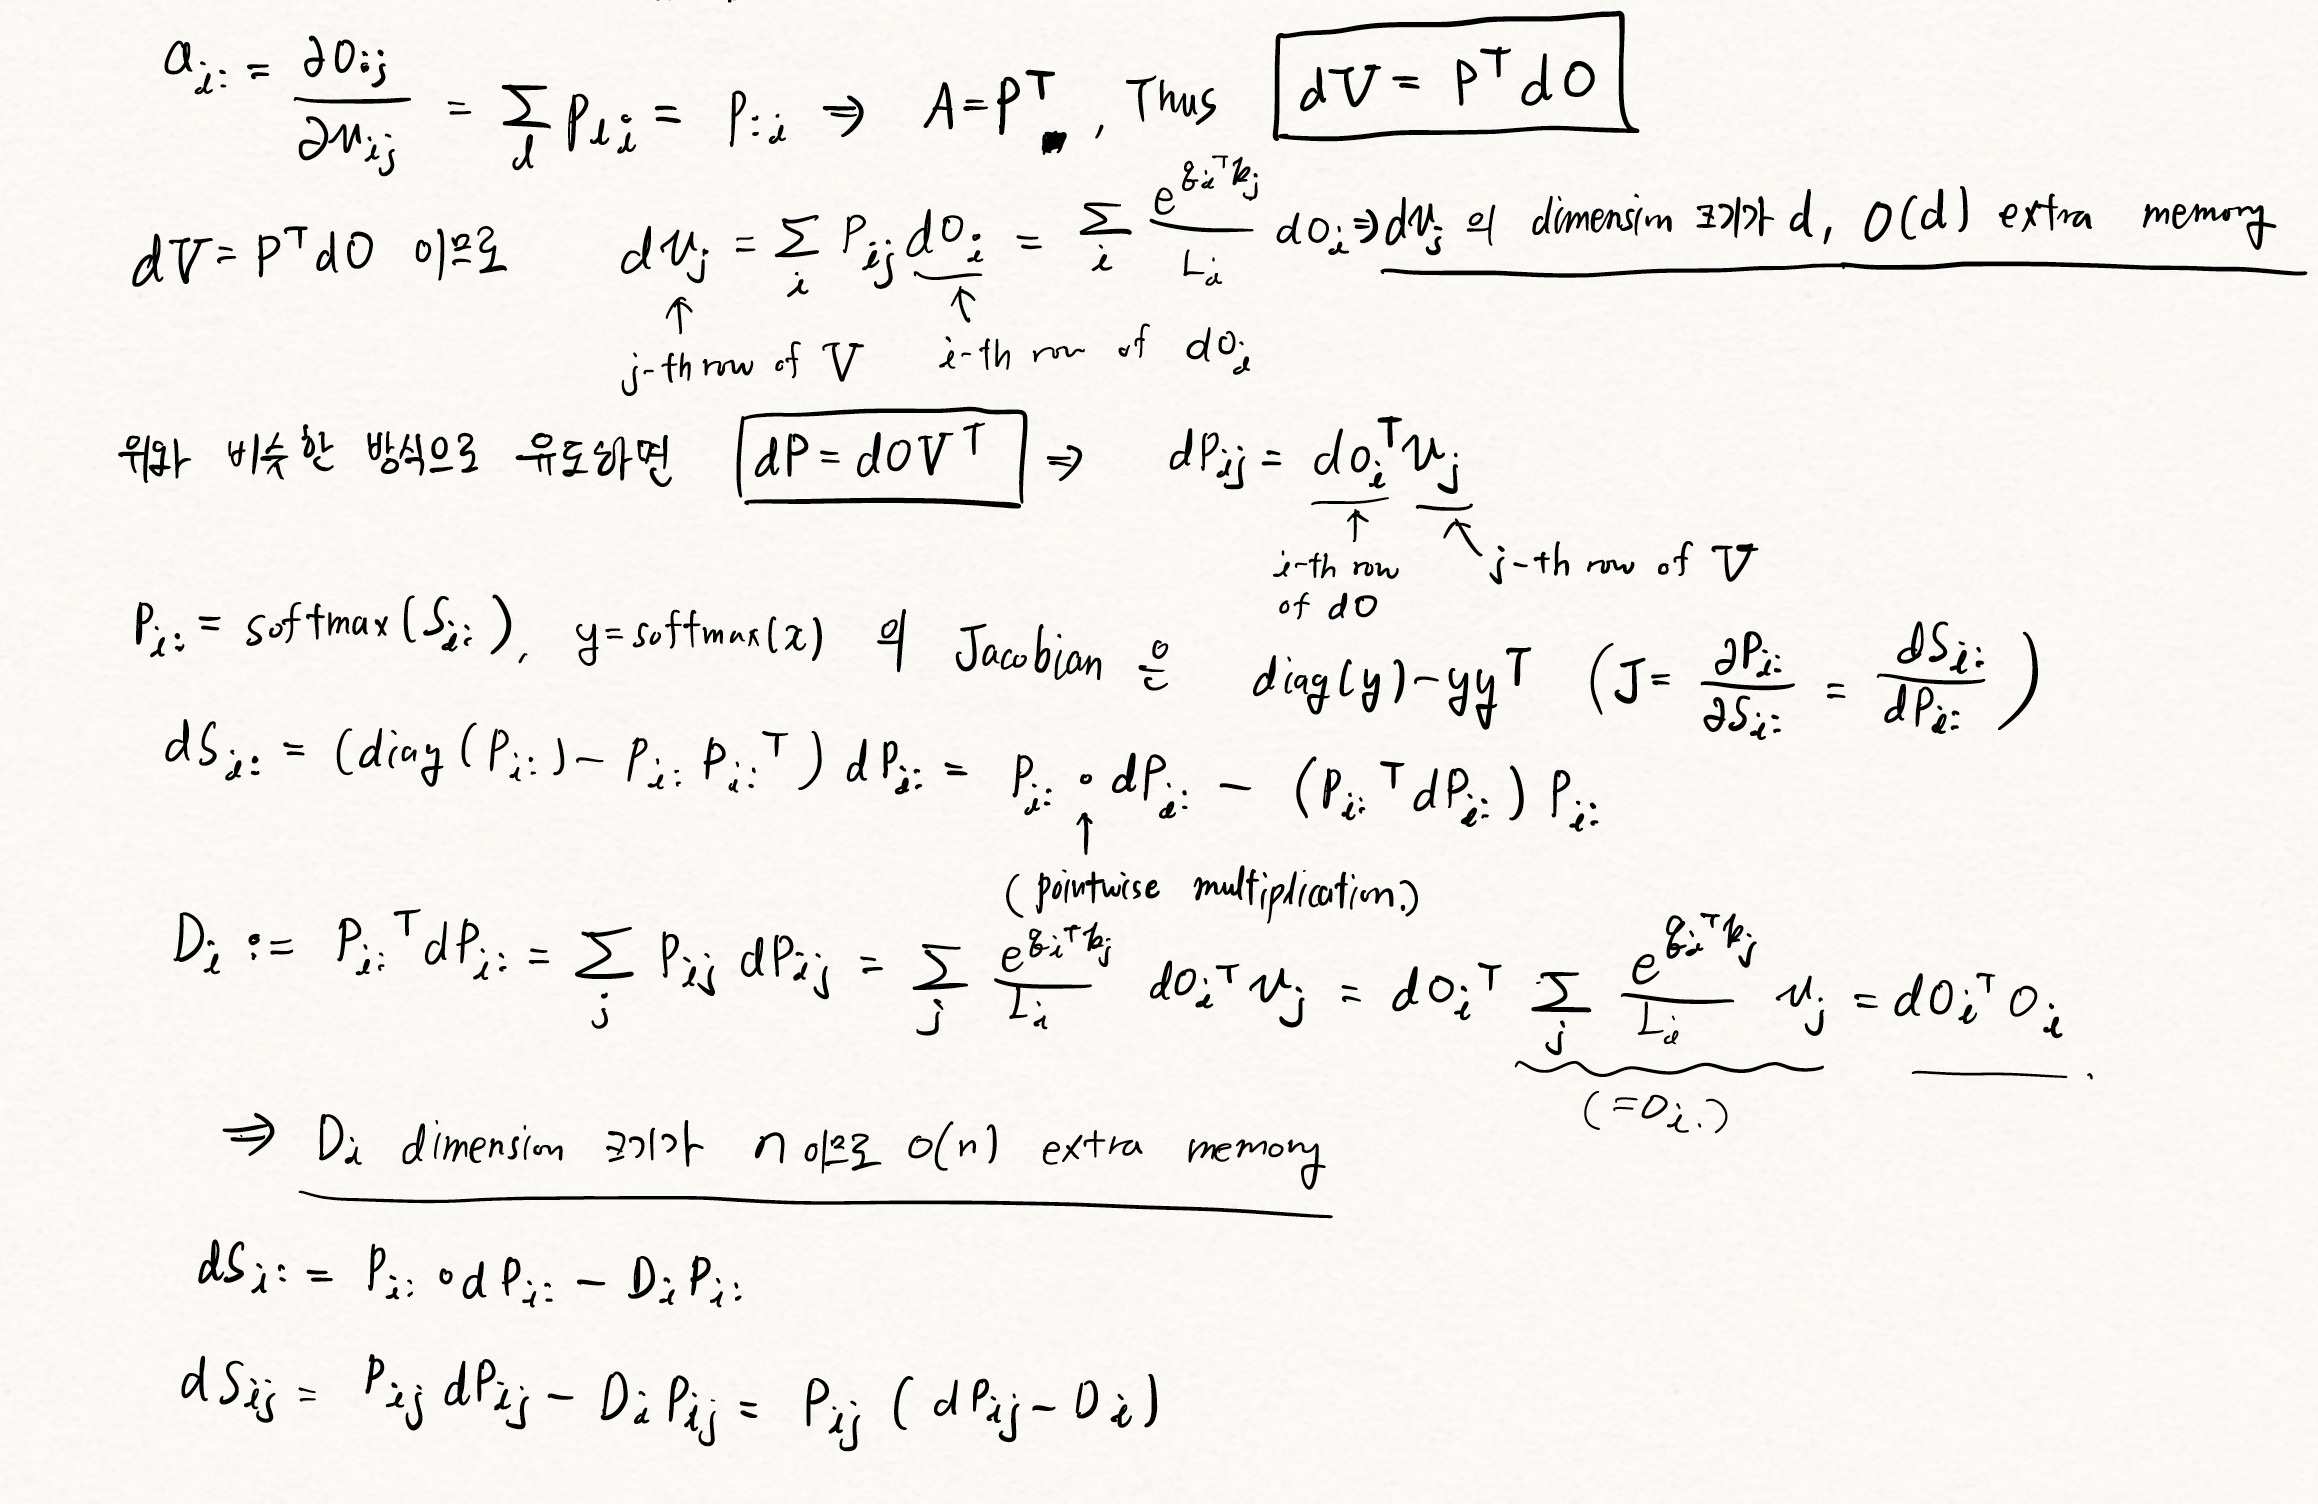 a_{i:} = ∂O_{ij}/∂v_{ij} = Σ_l P_{li} = P_{:i} ⇒ A = P^T, Thus dV = P^T dO
dV = P^T dO 이므로 dv_j = Σ_i P_{ij} dO_i = Σ_i e^{q_i^T k_j}/L_i dO_i ⇒ dv_j 의 dimension 크기가 d, O(d) extra memory
↑ ↑
j-th row of V i-th row of dO_i
위와 비슷한 방식으로 유도하면 dP = dOV^T ⇒ dP_{ij} = do_i^T v_j
↑ ↖
i-th row of dO j-th row of V
P_{i:} = softmax(S_{i:}), y = softmax(x) 의 Jacobian 은 diag(y) - yy^T (J = ∂P_{i:}/∂S_{i:} = dS_{i:}/dP_{i:})
dS_{i:} = (diag(P_{i:}) - P_{i:} P_{i:}^T) dP_{i:} = P_{i:} ∘ dP_{i:} - (P_{i:}^T dP_{i:}) P_{i:}
↑
(pointwise multiplication.)
D_i := P_{i:}^T dP_{i:} = Σ_j P_{ij} dP_{ij} = Σ_j e^{q_i^T k_j}/L_i dO_i^T v_j = dO_i^T Σ_j e^{q_i^T k_j}/L_i v_j = dO_i^T O_i.
(=O_i.)
⇒ D_i dimension 크기가 n 이므로 O(n) extra memory
dS_{i:} = P_{i:} ∘ dP_{i:} - D_i P_{i:}
dS_{ij} = P_{ij} dP_{ij} - D_i P_{ij} = P_{ij} (dP_{ij} - D_i)